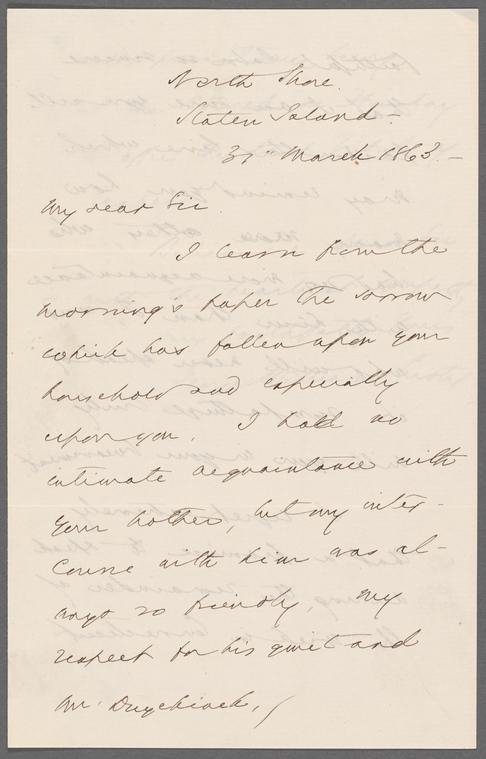 North Shore.
Staten Island –
31" March 1863. –
My dear Sir
I learn from the
morning's paper the sorrow
which has fallen upon your
household and especially
upon you. I held no
intimate acquaintance with
your brother, but my inter-
course with him was al-
ways so friendly, my
respect for his quiet and
Mr. Duyckinck. /